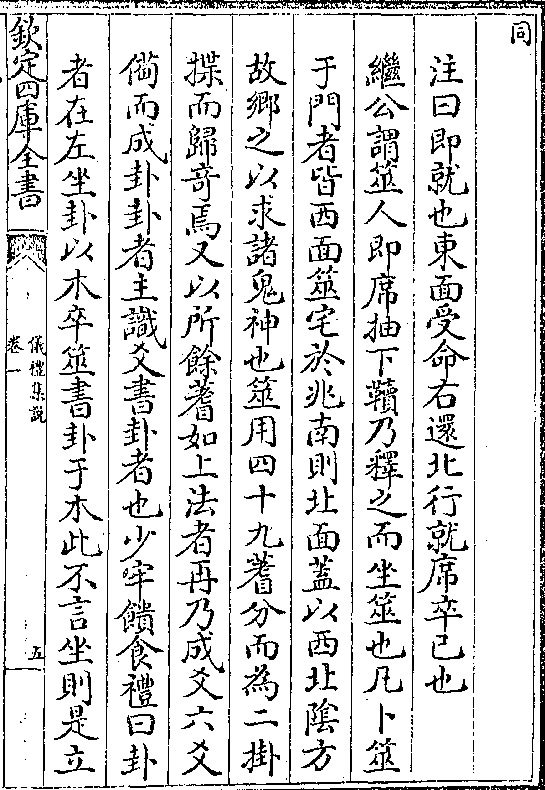 同
注曰即就也東面受命右還北行就席卒已也
繼公謂筮人即席抽下韇乃釋之而坐筮也凡卜筮
于門者皆西面筮宅於兆南則北面蓋以西北隂方
故鄉之以求諸鬼神也筮用四十九蓍分而為二掛
揲而歸竒焉又以所餘蓍如上法者再乃成爻六爻
僃而成卦卦者主識爻書卦者也少牢饋食禮曰卦
者在左坐卦以木卒筮書卦于木此不言坐則是立
欽定四庫全書
儀禮集説
卷一
五